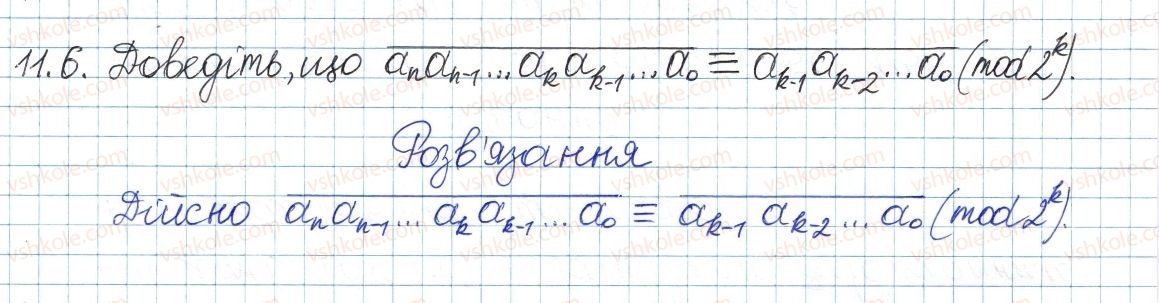 11.6. Доведіть, що $\overline{a_n a_{n-1} \ldots a_k a_{k-1} \ldots a_0} \equiv \overline{a_{k-1} a_{k-2} \ldots a_0} \pmod{2^k}$.
Розв'язання
Дійсно $\overline{a_n a_{n-1} \ldots a_k a_{k-1} \ldots a_0} \equiv \overline{a_{k-1} a_{k-2} \ldots a_0} \pmod{2^k}$.